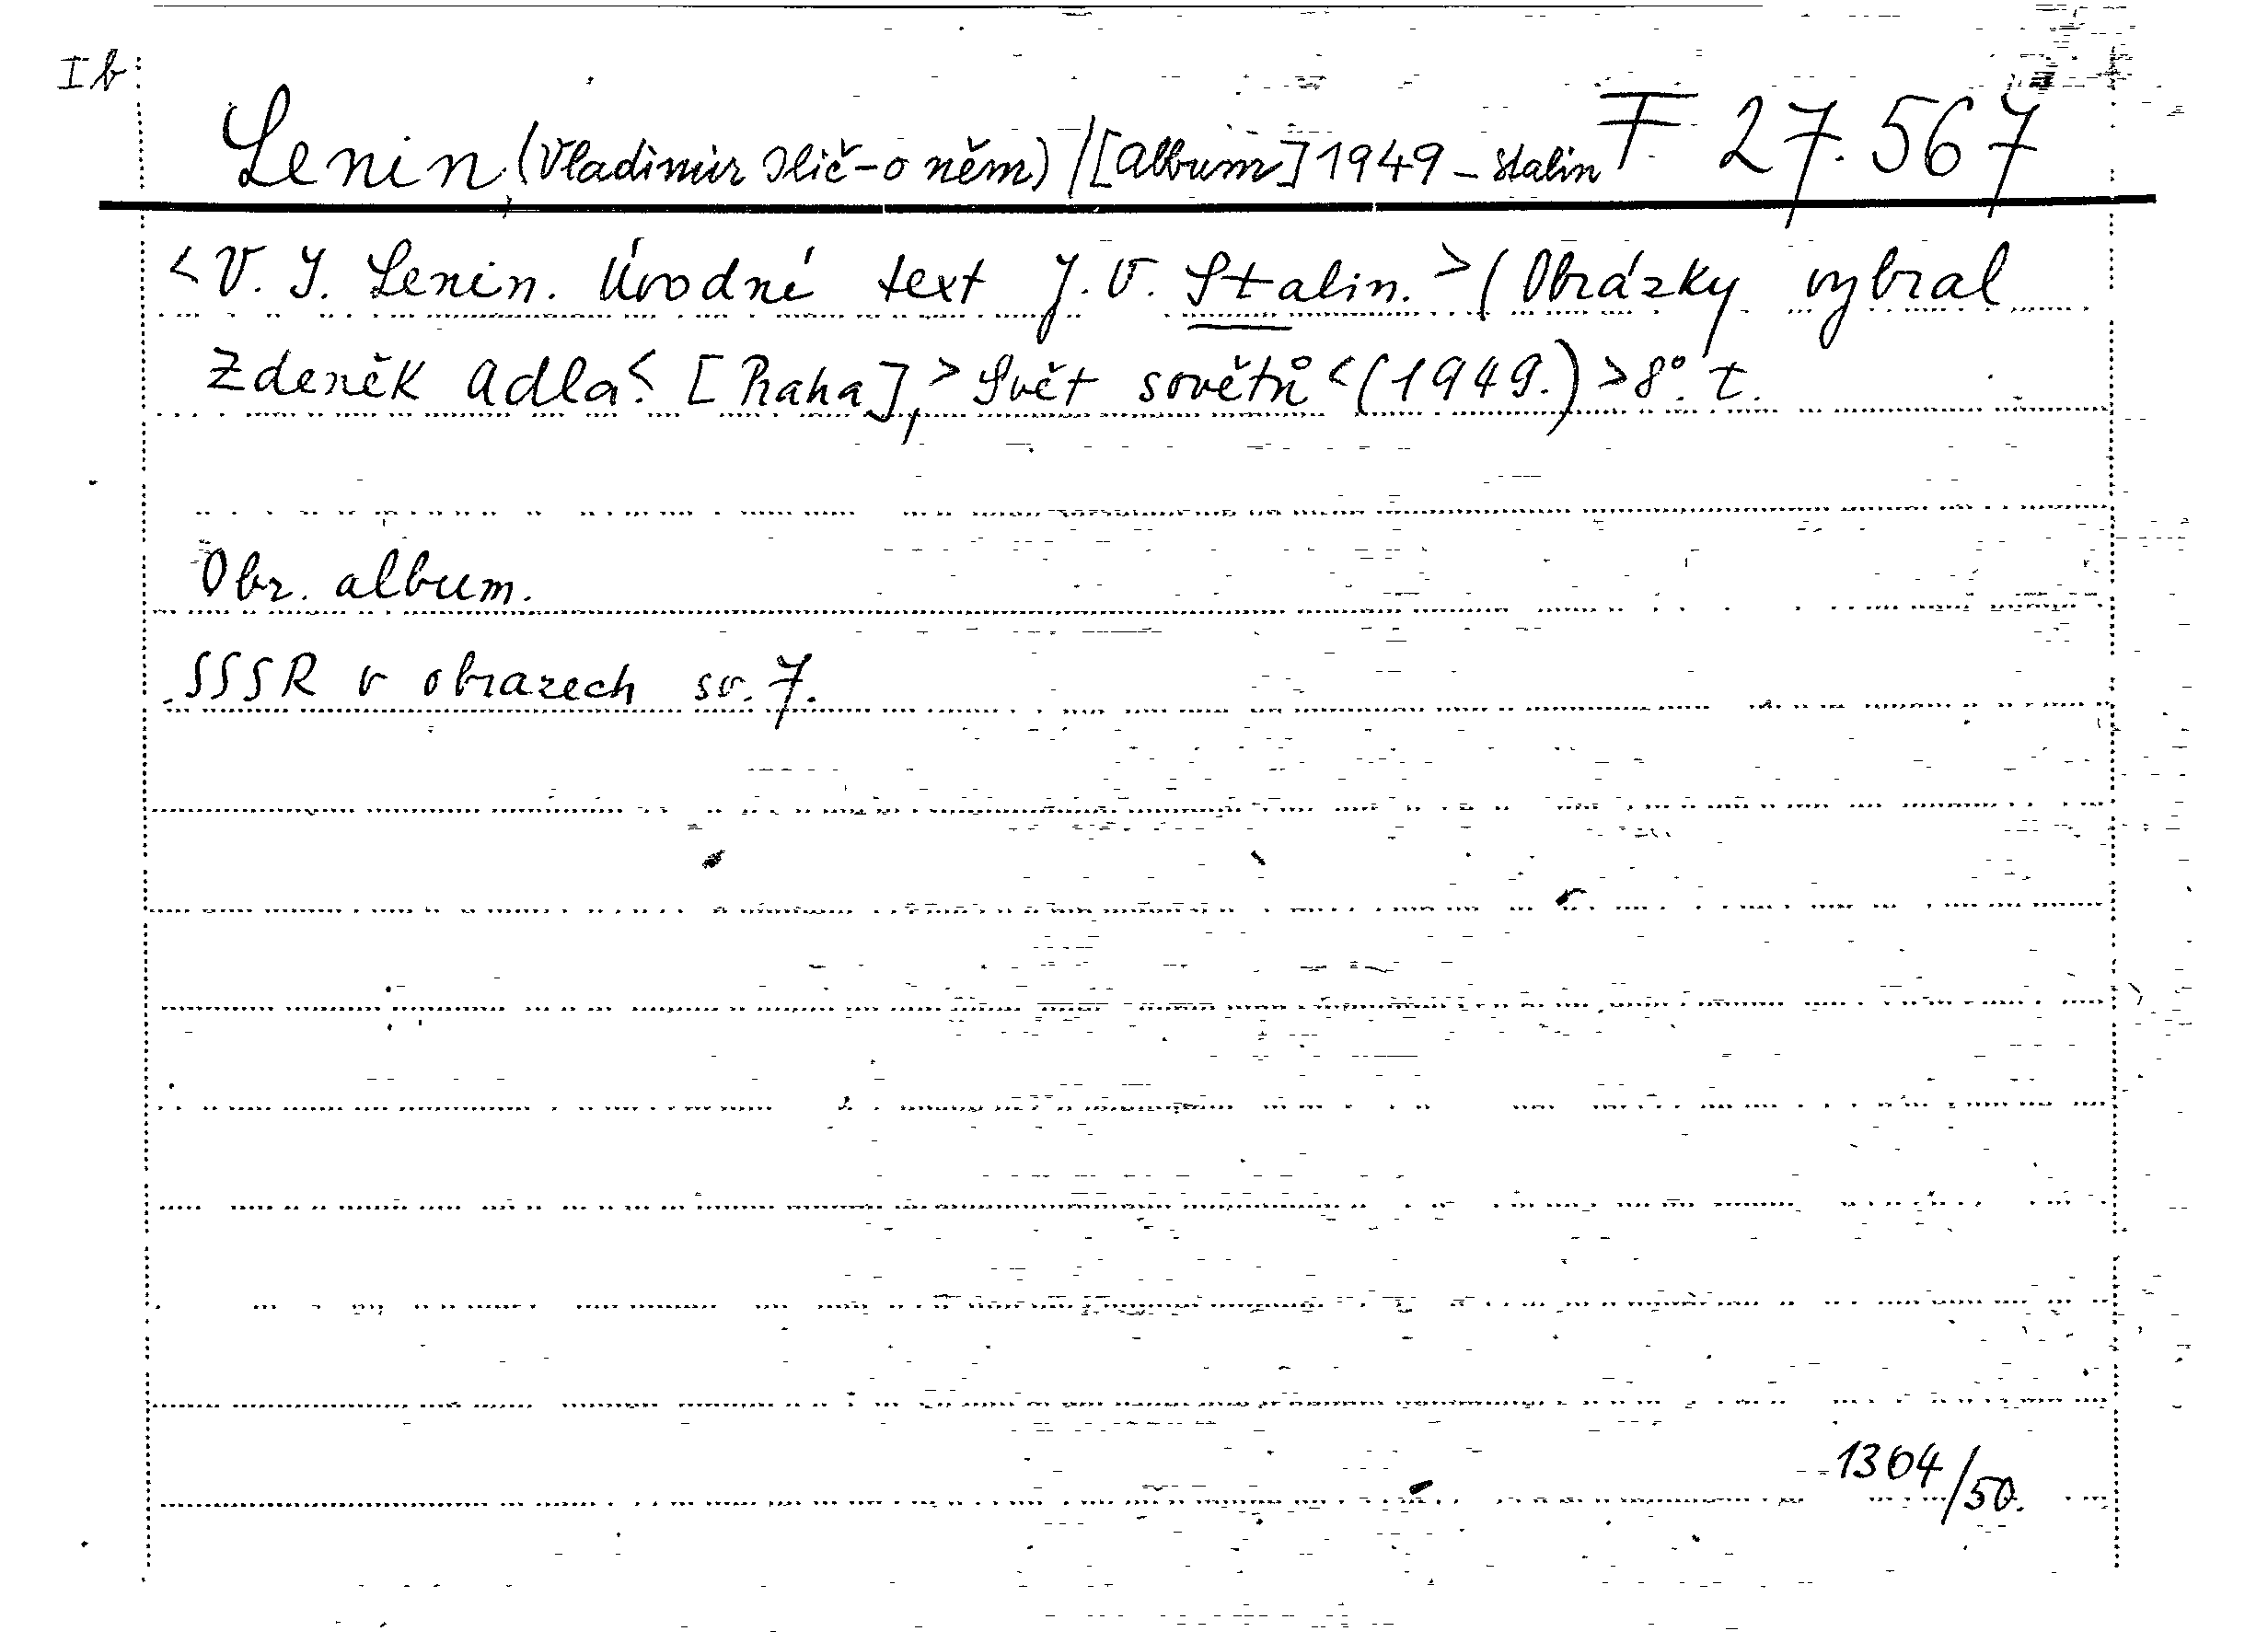 Ib
Lenin (Vladimir Ilič - o něm) / [album] 1949 - Stalin F 27.567
<V. I. Lenin. Úvodní text J. V. Stalin.> (Obrázky vybral
Zdeněk Adla.< [Praha],> Svět sovětů <(1949.)> 8°. t.
Obr. album.
SSSR v obrazech sv. 7.
1304/50.